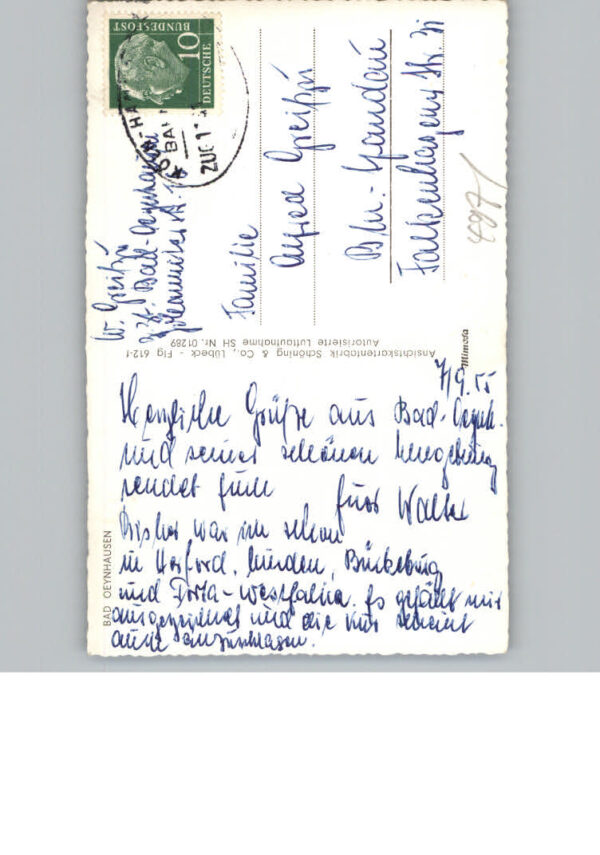 7/9.55
Herzliche Grüße aus Bad-Oeynh.
und seiner schönen Umgebung
sendet Euch Euer Walter
Bisher war ich schon
in Herford, Minden, Bückeburg
und Porta-Westfalica. Es gefällt mir
ausgezeichnet und die Kur scheint
auch anzuschlagen.
BAD OEYNHAUSEN
Ansichtskartenfabrik Schöning & Co., Lübeck - Flg 612-f
Autorisierte Luftaufnahme SH Nr. 01289
Mimosa
W.
z. Zt. Bad-Oeynhausen
Familie
Alfred
Bln.-Spandau
Falkenhagener Str. 31
4897/
DEUTSCHE
BUNDESPOST
10
ZUG